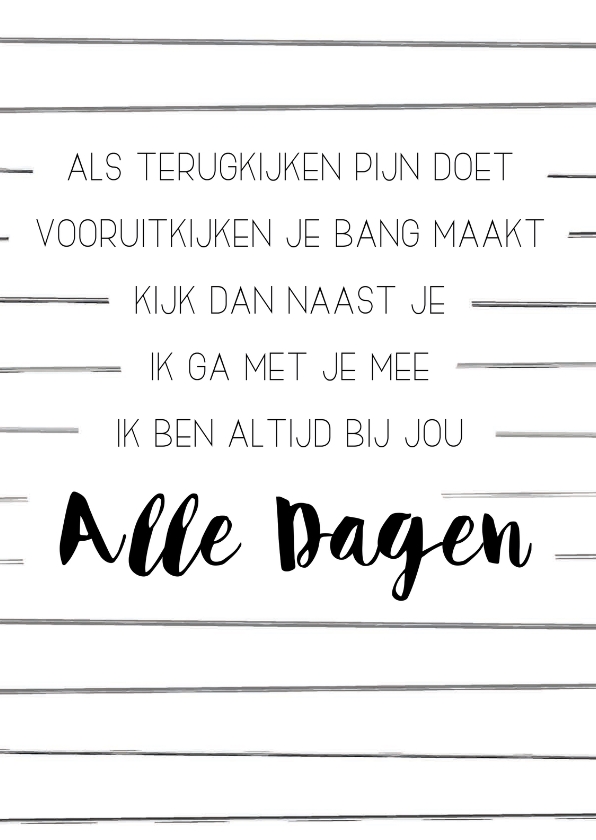 ALS TERUGKIJKEN PIJN DOET
VOORUITKIJKEN JE BANG MAAKT
KIJK DAN NAAST JE
IK GA MET JE MEE
IK BEN ALTIJD BIJ JOU
Alle Dagen